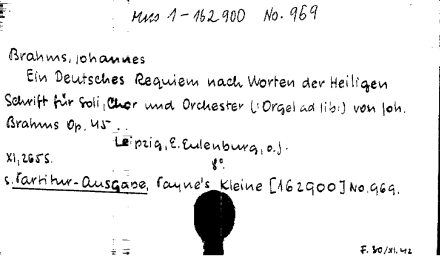 Mus 1-162900 No. 969
Brahms, Johannes
Ein Deutsches Requiem nach Worten der Heiligen
Schrift für Soli, Chor und Orchester (: Orgel ad lib:) von Joh.
Brahms Op. 45 ..
Leipzig, E. Eulenburg, o. J.
XI, 265 S. 8°
s. Partitur-Ausgabe, Payne's Kleine [162900] No. 969.
F. 30/XI. 42